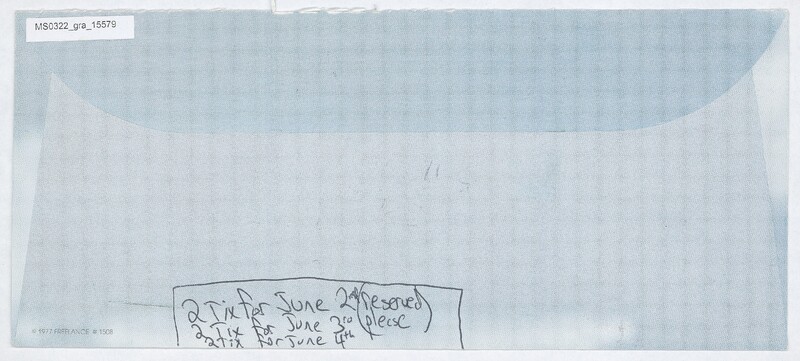 MS0322_gra_15579
2 Tix for June 2nd (reserved
2 Tix for June 3rd please)
2 Tix for June 4th
© 1977 FREELANCE # 1508